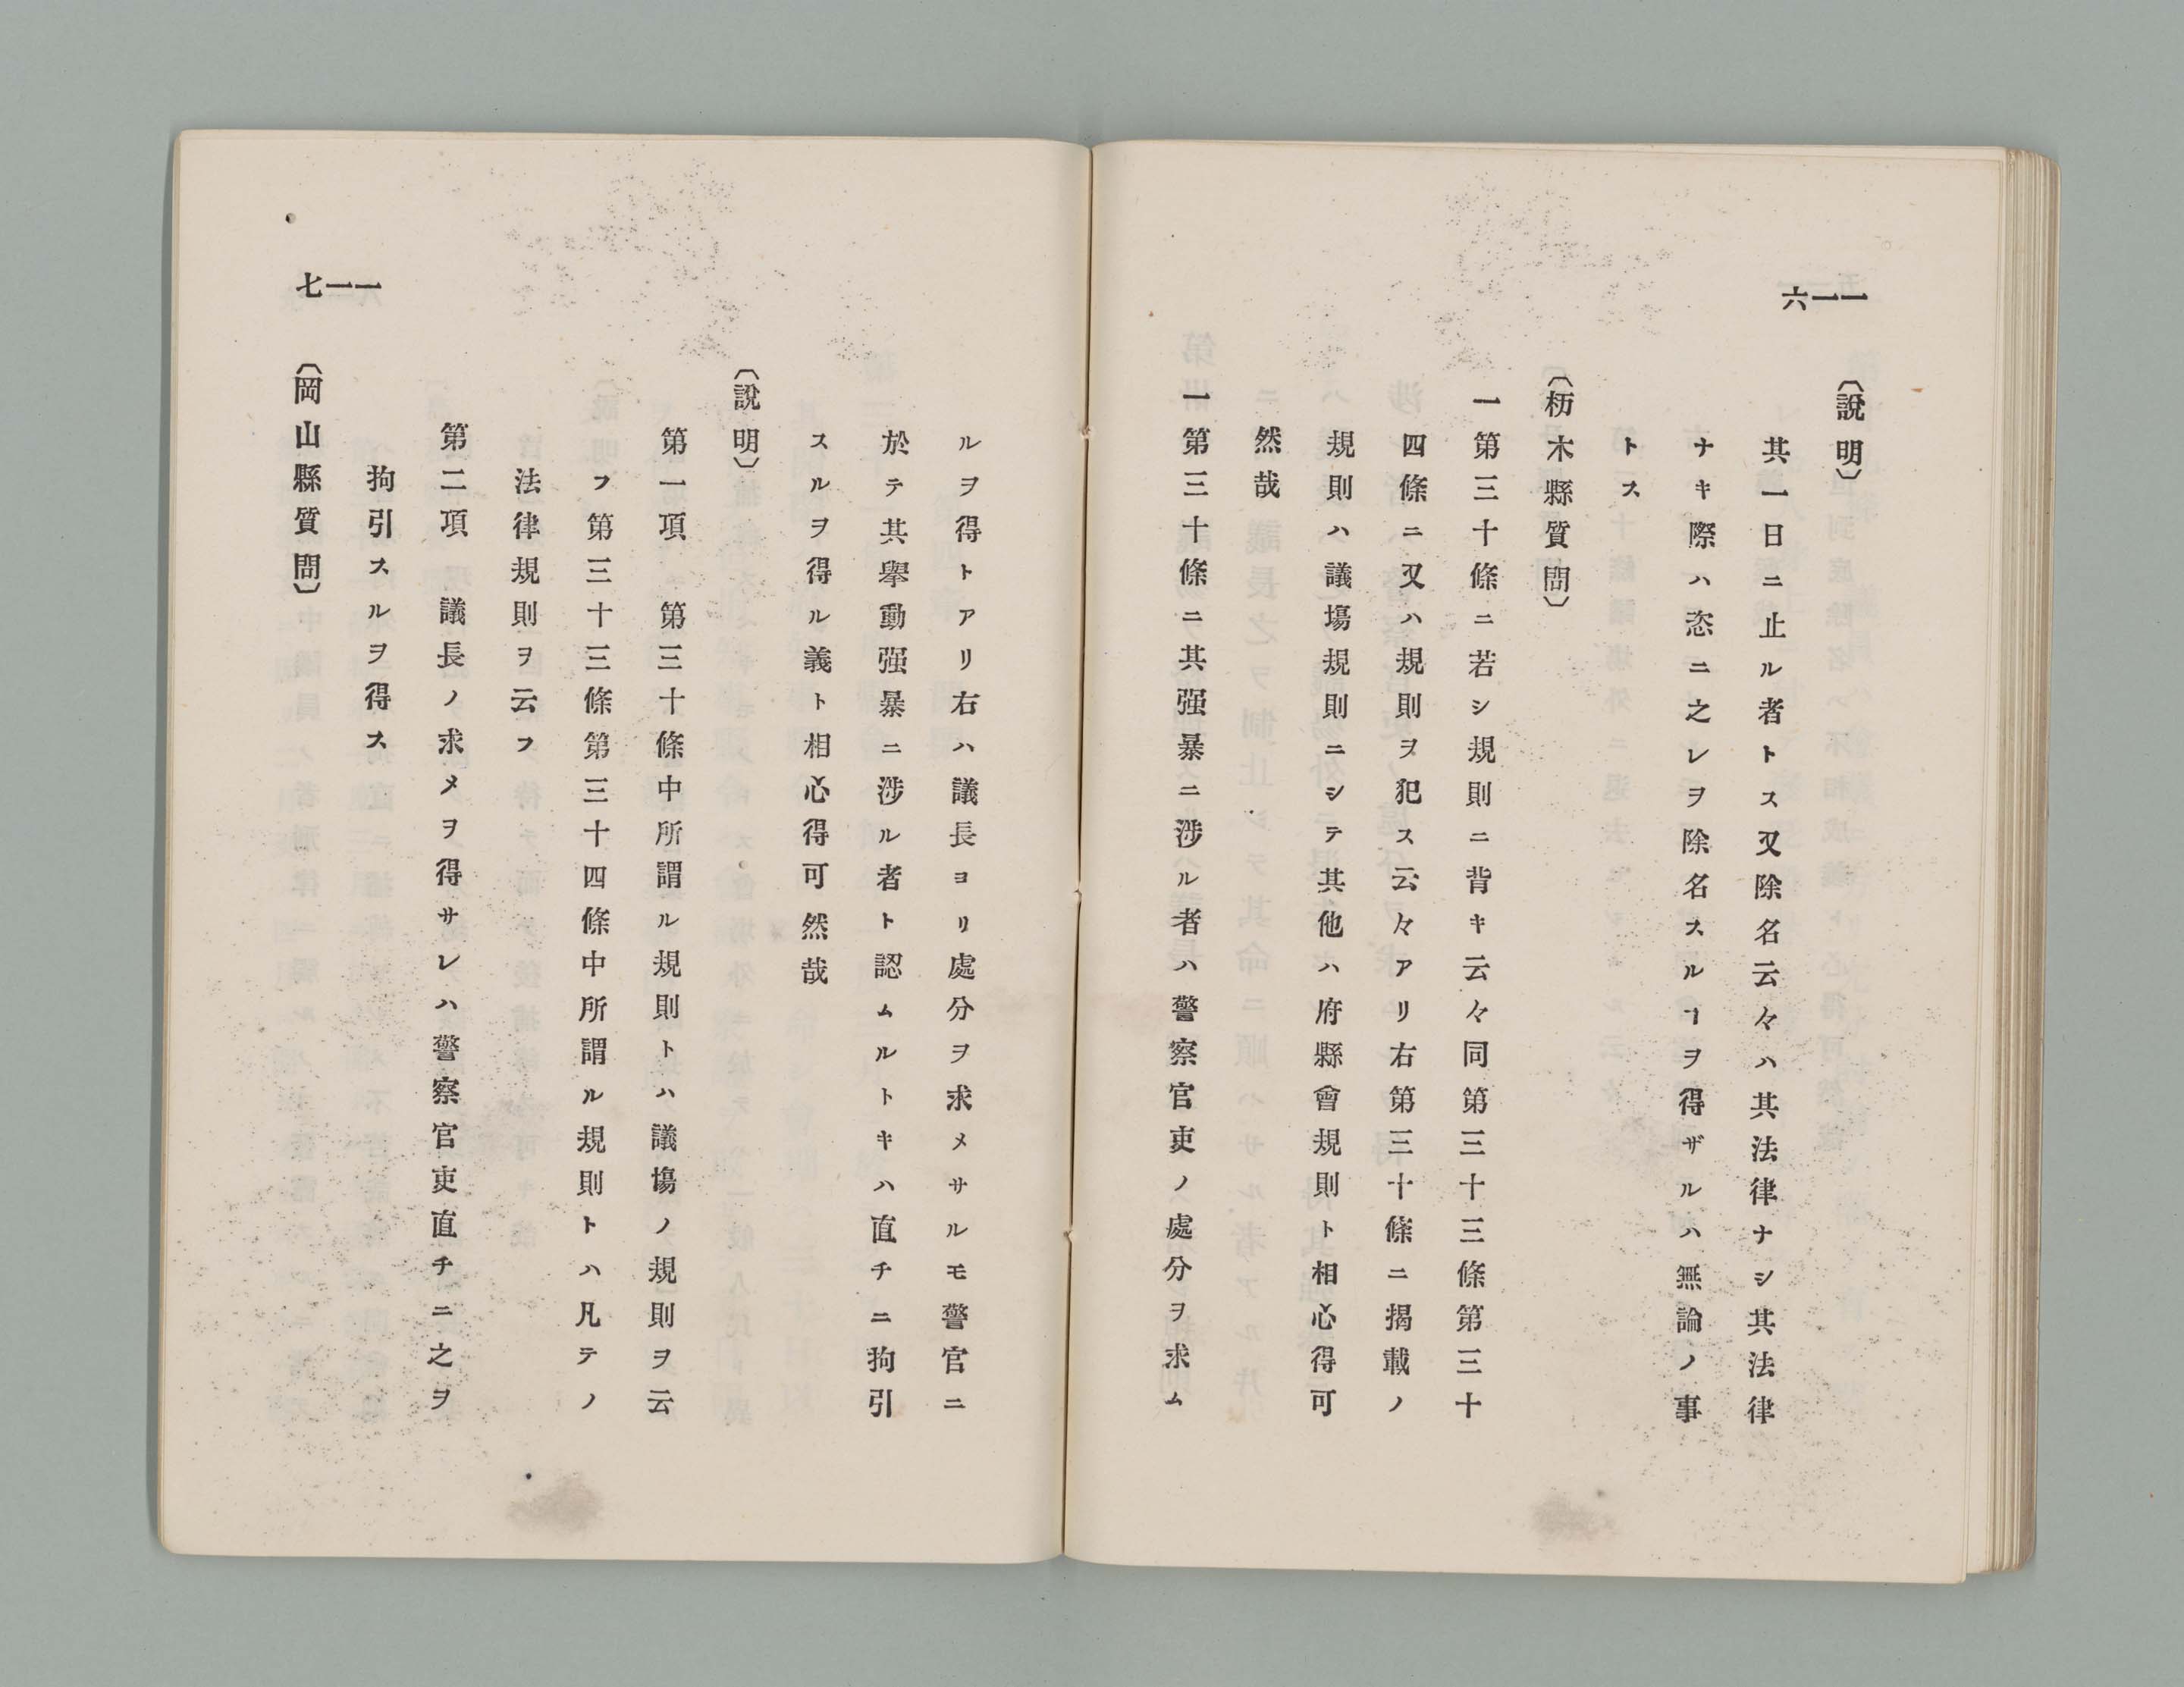 六一一
〔說明〕
其一日ニ止ル者トス又除名云々ハ其法律ナシ其法律
ナキ際ハ恣ニ之レヲ除名スルヿヲ得ザルハ無論ノ事
トス
〔栃木縣質問〕
一第三十條ニ若シ規則ニ背キ云々同第三十三條第三十
四條ニ又ハ規則ヲ犯ス云々アリ右第三十條ニ揭載ノ
規則ハ議塲規則ニシテ其他ハ府縣會規則ト相心得可
然哉
一第三十條ニ其强暴ニ涉ル者ハ警察官吏ノ處分ヲ求ム
七一一
ルヲ得トアリ右ハ議長ヨリ處分ヲ求メサルモ警官ニ
於テ其擧動强暴ニ涉ル者ト認ムルトキハ直チニ拘引
スルヲ得ル義ト相心得可然哉
〔說明〕
第一項　第三十條中所謂ル規則トハ議塲ノ規則ヲ云
フ第三十三條第三十四條中所謂ル規則トハ凡テノ
法律規則ヲ云フ
第二項　議長ノ求メヲ得サレハ警察官吏直チニ之ヲ
拘引スルヲ得ス
〔岡山縣質問〕